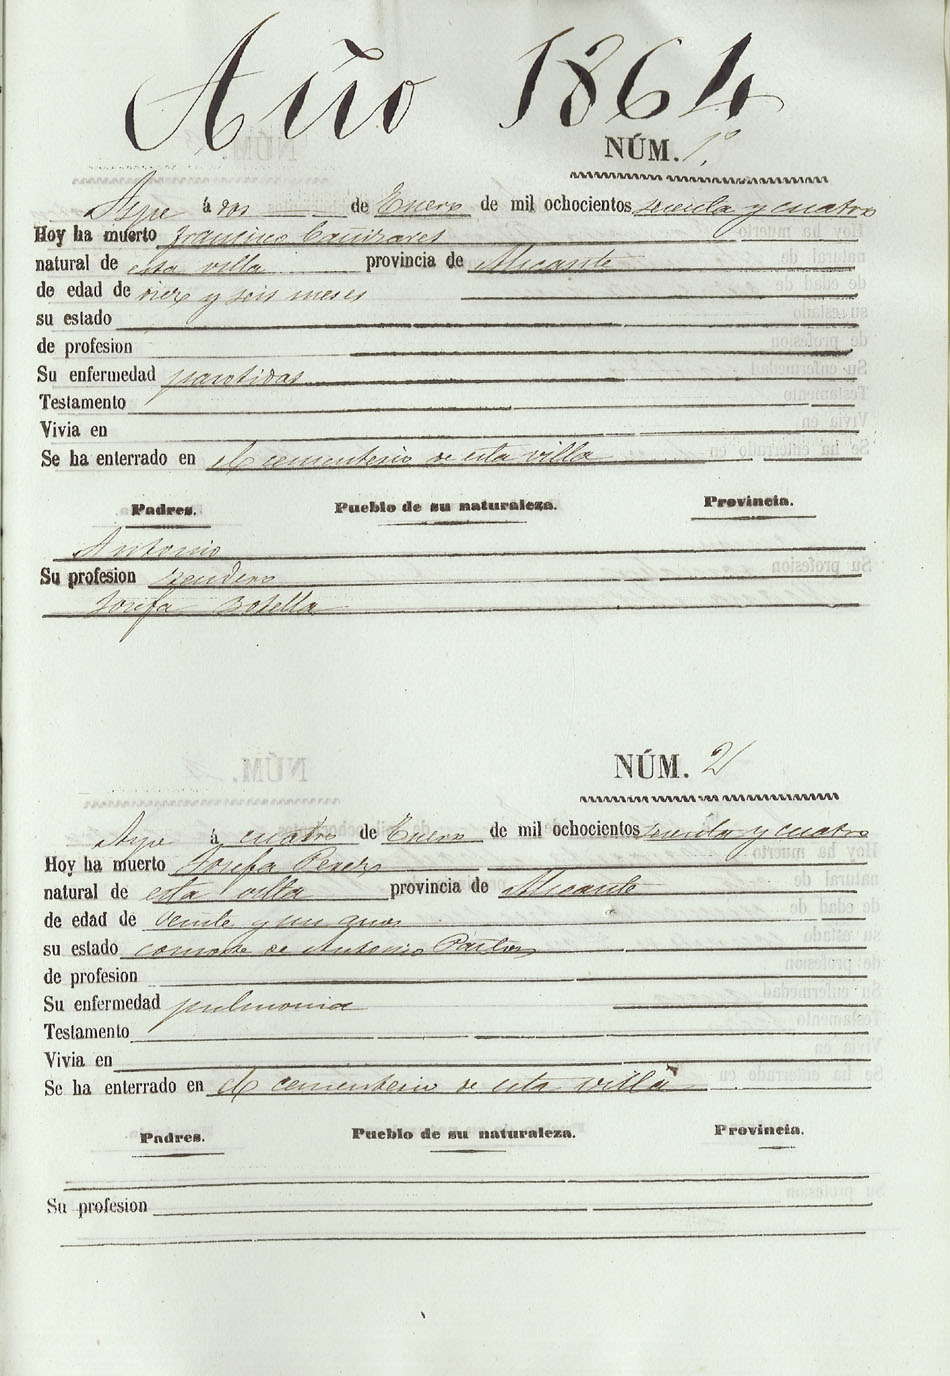 Año 1864
NÚM. 1º
Aspe á dos de Enero de mil ochocientos sesenta y cuatro
Hoy ha muerto Francisco Cañizares
natural de esta villa provincia de Alicante
de edad de diez y seis meses
su estado
de profesion
Su enfermedad parotidas
Testamento
Vivia en
Se ha enterrado en el cementerio de esta villa
Padres. Pueblo de su naturaleza. Provincia.
Antonio
Su profesion
Josefa Botella
NÚM. 2
Aspe á cuatro de Enero de mil ochocientos sesenta y cuatro
Hoy ha muerto Josefa Perez
natural de esta villa provincia de Alicante
de edad de veinte y un años
su estado consorte de Antonio
de profesion
Su enfermedad pulmonia
Testamento
Vivia en
Se ha enterrado en el cementerio de esta villa
Padres. Pueblo de su naturaleza. Provincia.
Su profesion